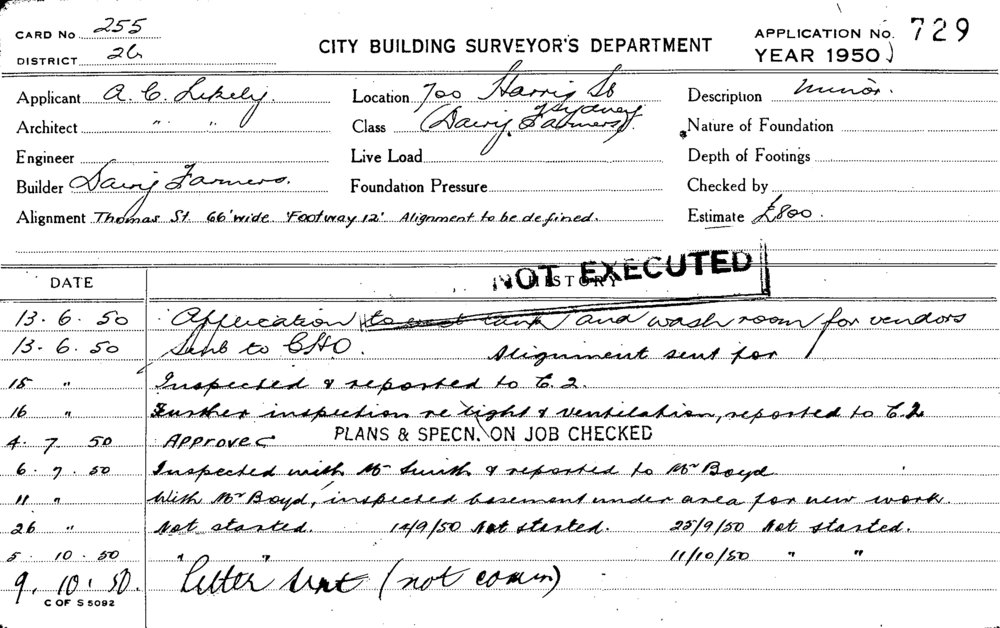 CARD No 255
DISTRICT 26
CITY BUILDING SURVEYOR'S DEPARTMENT
APPLICATION No. 729
YEAR 1950
Applicant A. C. Likely.
Location 700 Harris St
Sydney
Description Minor.
Architect " "
Class (Dairy Farmers).
Nature of Foundation
Engineer
Live Load
Depth of Footings
Builder Dairy Farmers.
Foundation Pressure
Checked by
Alignment Thomas St. 66' wide 'Footway 12' Alignment to be defined.
Estimate £800.
NOT EXECUTED
DATE HISTORY
13. 6. 50 Application to erect tank and wash room for vendors
13. 6. 50 Sent to CHO. Alignment sent for
15 " Inspected & reported to C.2.
16 " Further inspection re light & ventilation, reported to C.2
4. 7. 50 Approved PLANS & SPECN. ON JOB CHECKED
6. 7. 50 Inspected with Mr Smith & reported to Mr Boyd
11 " With Mr Boyd, inspected basement under area for new work.
26 " Not started. 14/9/50 Not started. 25/9/50 Not started.
5. 10. 50 " " 11/10/50 " "
9. 10. 50. letter sent (not comm)
C OF S 5092